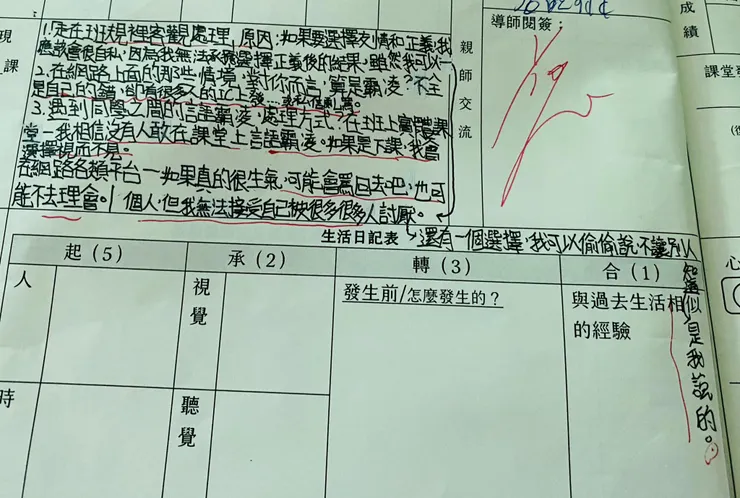 現
課
1.走在班規裡客觀處理,原因:如果要選擇友情和正義,我
應該會很自私,因為我無法承擔選擇正義後的結果,雖然我可以一
2.在網路上面的那些情境,對你而言,算是霸凌?不全
是自己的錯,卻有很多人的
3.遇到同學之間的言語霸凌,處理方式?在班上實體課
堂一我相信沒有人敢在課堂上言語霸凌。如果是下課,我會
選擇視而不見。
在網路各類平台一如果真的很生氣,可能會罵回去吧,也可
能不去理會。
個人,但我無法接受自己被很多很多人討厭。
還有一個選擇,我可以偷偷說,不讓別人
知道似是我說的。
親師交流
導師閱簽:
成績
課堂
生活日記表
起(5)
承(2)
轉(3)
合(1)
人
視覺
發生前/怎麼發生的?
與過去生活相
的經驗
時
聽覺
心